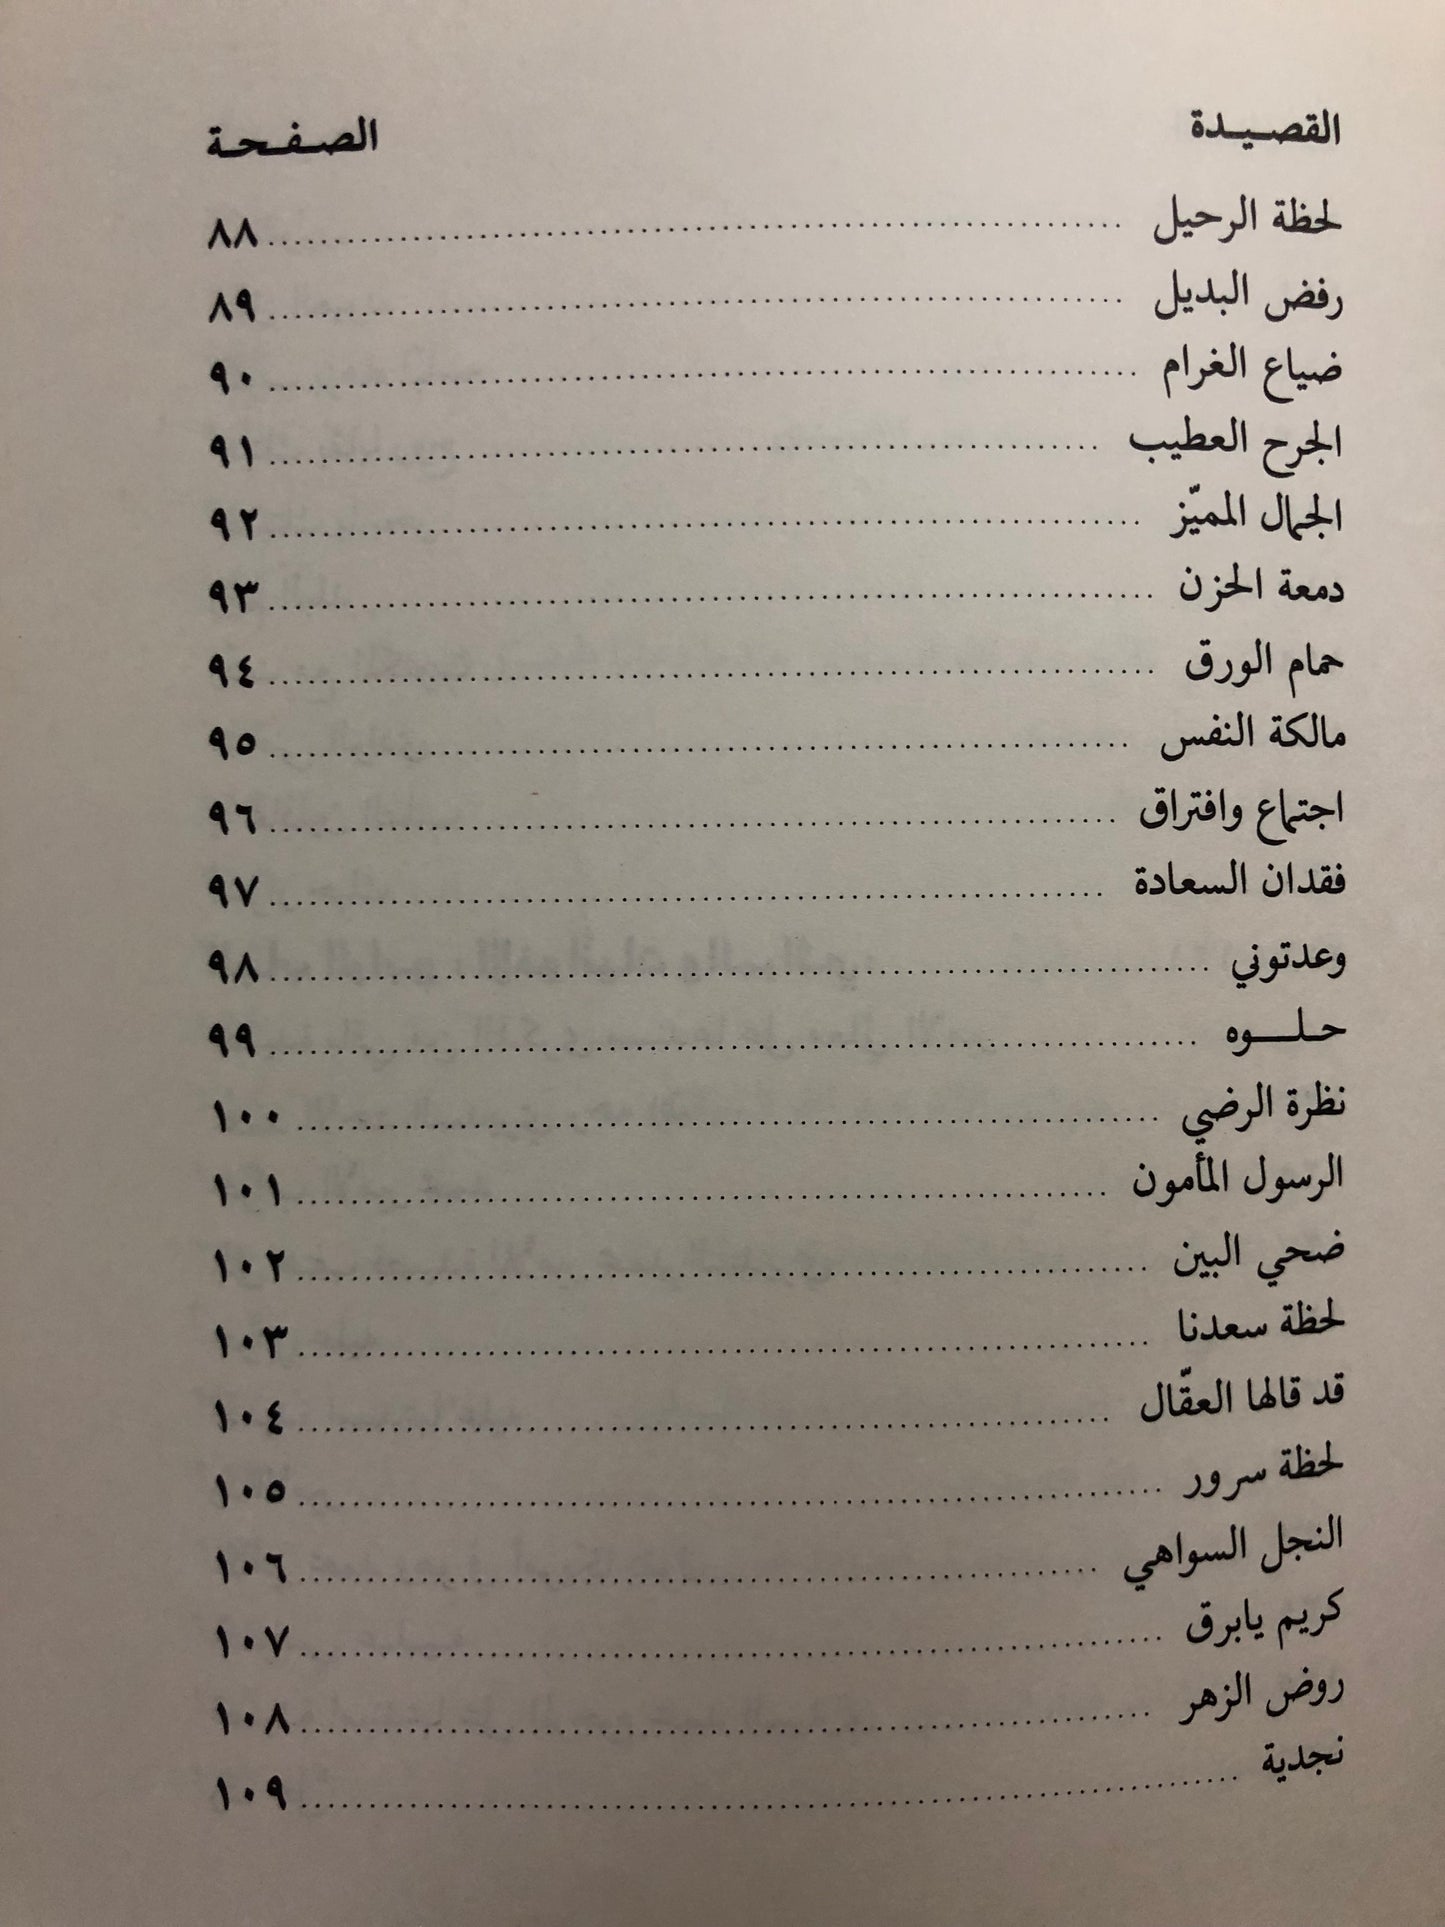 القصيدة الصفحة
لحظة الرحيل ........ ٨٨
رفض البديل ........ ٨٩
ضياع الغرام ........ ٩٠
الجرح العطيب ........ ٩١
الجمال المميّز ........ ٩٢
دمعة الحزن ........ ٩٣
حمام الورق ........ ٩٤
مالكة النفس ........ ٩٥
اجتماع وافتراق ........ ٩٦
فقدان السعادة ........ ٩٧
وعدتوني ........ ٩٨
حلوه ........ ٩٩
نظرة الرضي ........ ١٠٠
الرسول المأمون ........ ١٠١
ضحي البين ........ ١٠٢
لحظة سعدنا ........ ١٠٣
قد قالها العقّال ........ ١٠٤
لحظة سرور ........ ١٠٥
النجل السواهي ........ ١٠٦
كريم يابرق ........ ١٠٧
روض الزهر ........ ١٠٨
نجدية ........ ١٠٩